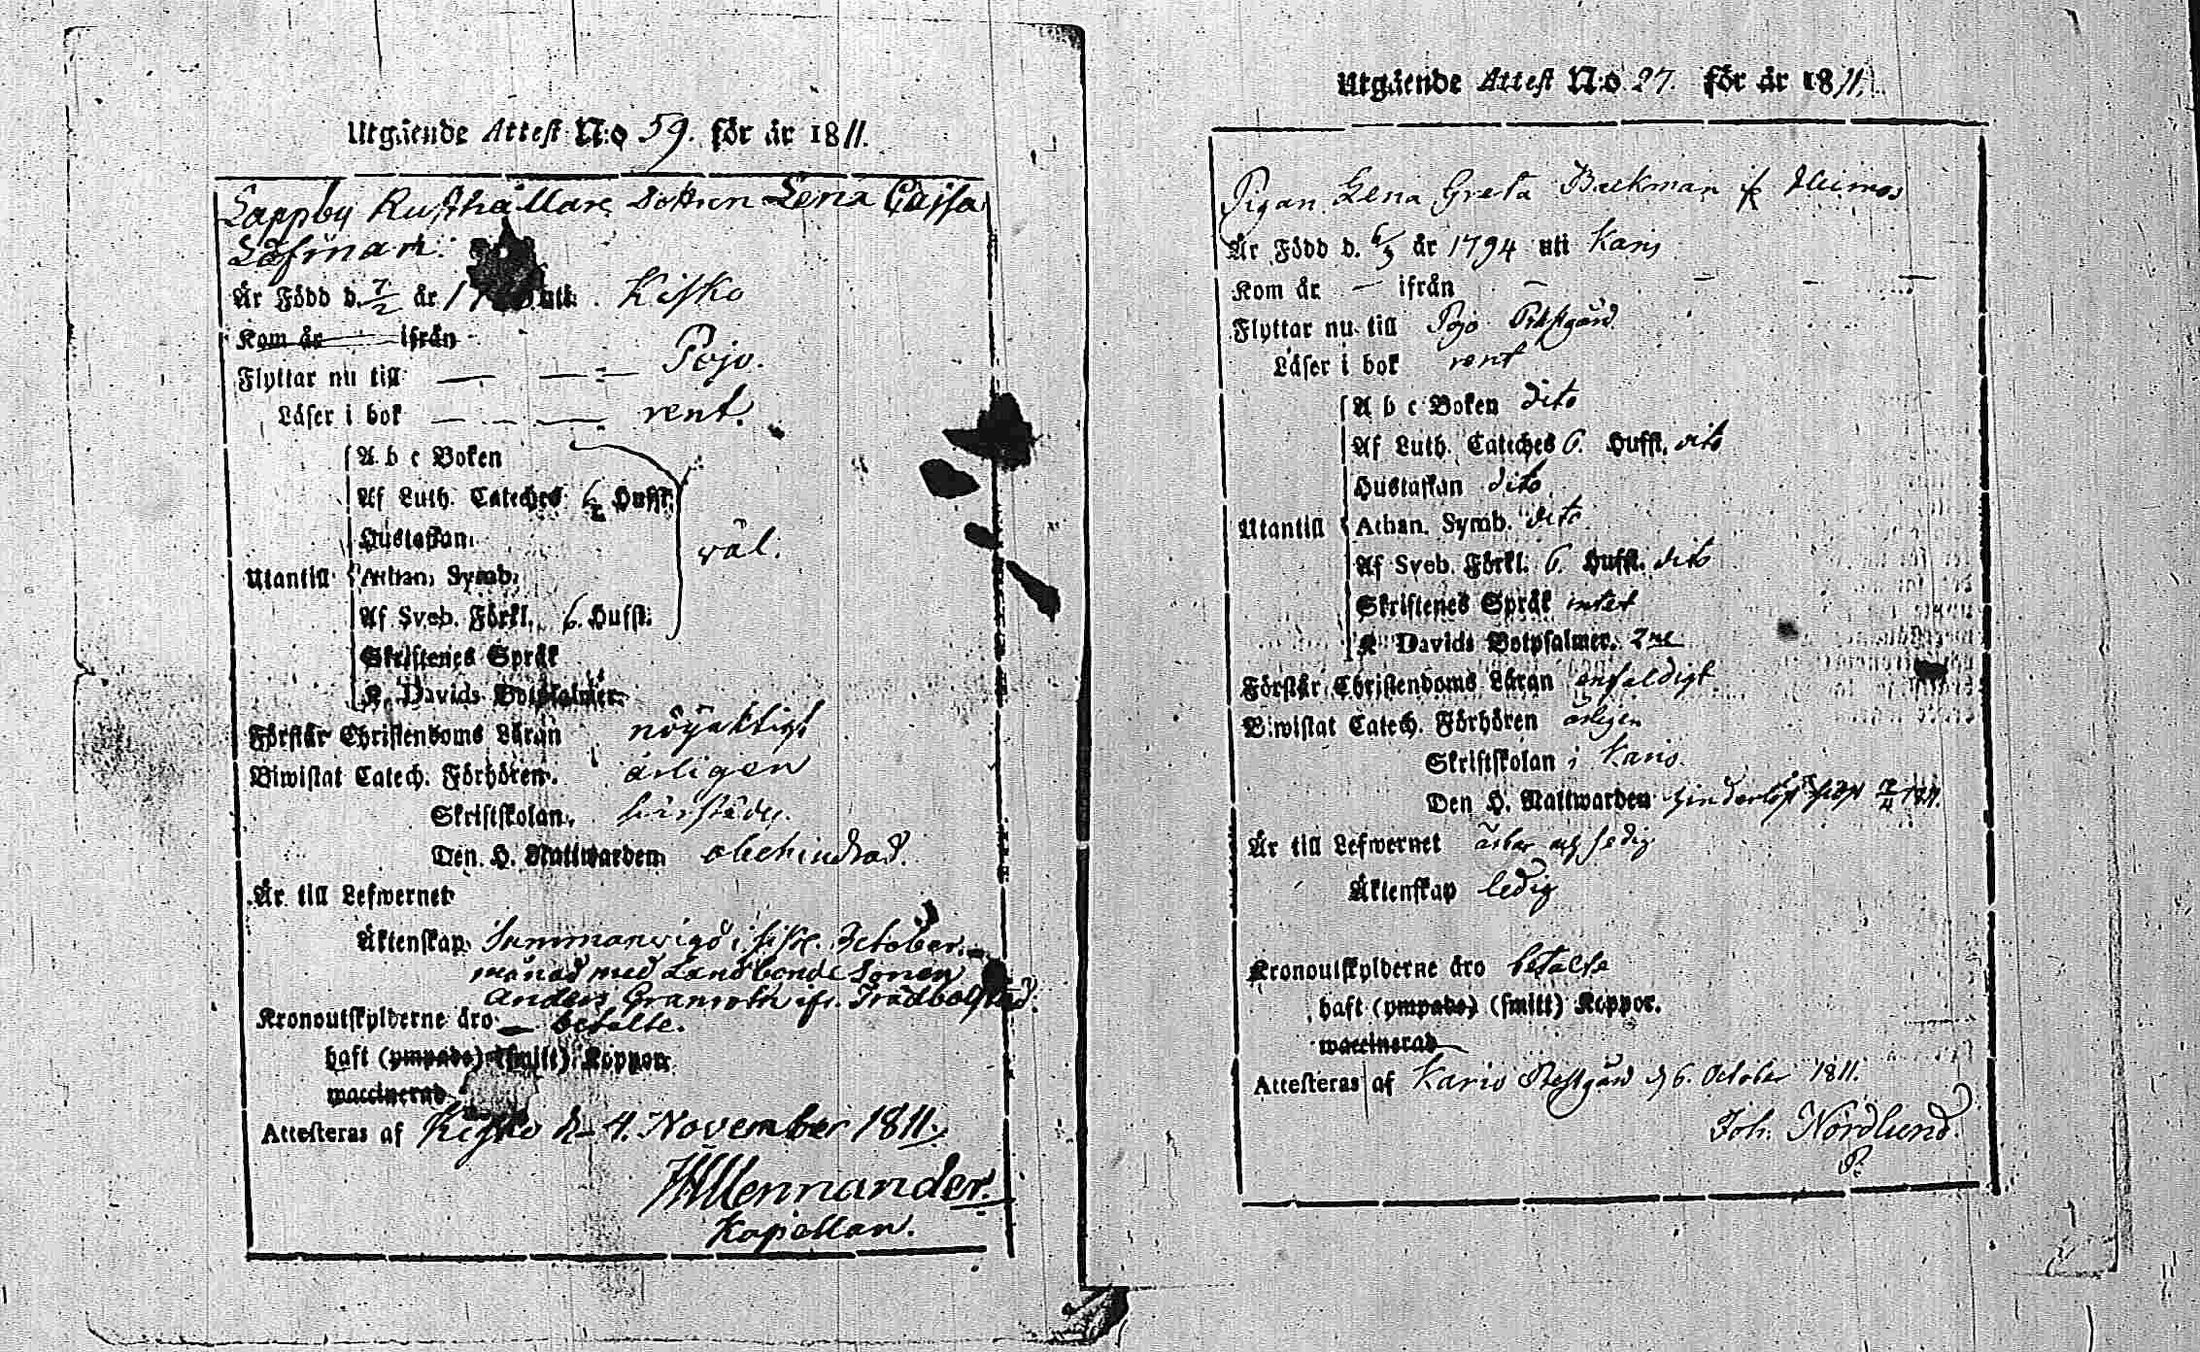 Utgående Attest N:o 59. för år 1811.
Lappby Rusthållare dottren Lena Cajsa
Löfman.
År Född d. 7/2 år 17 uti Kisko
Kom år ifrån
Flyttar nu till Pojo.
Läser i bok rent.
A b c Boken
Af Luth. Cateches 6 Hufst.
Hustaflan
Utantill Athan. Symb. wäl.
Af Sveb. Förkl. 6. Hufst.
Skriftenes Språk
K. Davids Botpsalmer.
Förstår Christendoms Läran nöyaktigt
Biwistat Catech. Förhören. årligen
Skriftskolan, härstädes.
Den H. Nattwarden obehindrad.
Är till Lefwernet
Äktenskap. Sammanvigd i sistl. October
månad med Landbonde Sonen
Anders Granroth ifr. Trädbolstad.
Kronoutskylderne äro betalte.
haft (ympade) (smitt) Koppor.
waccinerad
Attesteras af Kisko d. 4. November 1811.
Mennander.
Kapellan.
Utgående Attest N:o 27. för år 1811.
Pigan Lena Greta Backman fr
Är Född d. 6/3 år 1794 uti Karis
Kom år – ifrån –
Flyttar nu till Pojo Prästgård
Läser i bok rent
A b c Boken dito
Af Luth. Cateches 6. Hufst. dito
Hustaflan dito
Utantill Athan. Symb. dito
Af Sveb. Förkl. 6. Hufst. dito
Skriftenes Språk intet
K Davids Botpsalmer. 2ne
Förstår Christendoms Läran enfaldigt
Biwistat Catech. Förhören årligen
Skriftskolan i Karis
Den H. Nattwarden hinderlöst sidst 7/4 1811.
Är till Lefwernet ärbar och sedig
Äktenskap ledig
Kronoutskylderne äro betalte
haft (ympade) (smitt) Koppor.
waccinerad
Attesteras af Karis Prestgård d 6. October 1811.
Joh. Nordlund.
P.